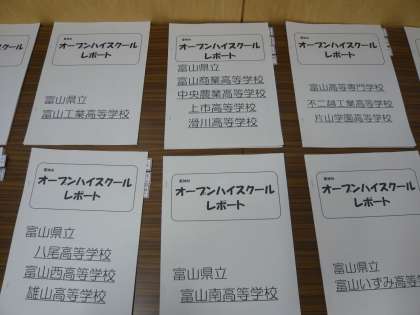 オープンハイスクール
レポート
富山県立
富山工業高等学校
オープンハイスクール
レポート
富山県立
富山商業高等学校
中央農業高等学校
上市高等学校
滑川高等学校
オープンハイスクール
レポート
富山高等専門学校
不二越工業高等学校
片山学園高等学校
オープンハイスクール
レポート
富山県立
八尾高等学校
富山西高等学校
雄山高等学校
オープンハイスクール
レポート
富山県立
富山南高等学校
オープンハイスクール
レポート
富山県立
富山いずみ高等